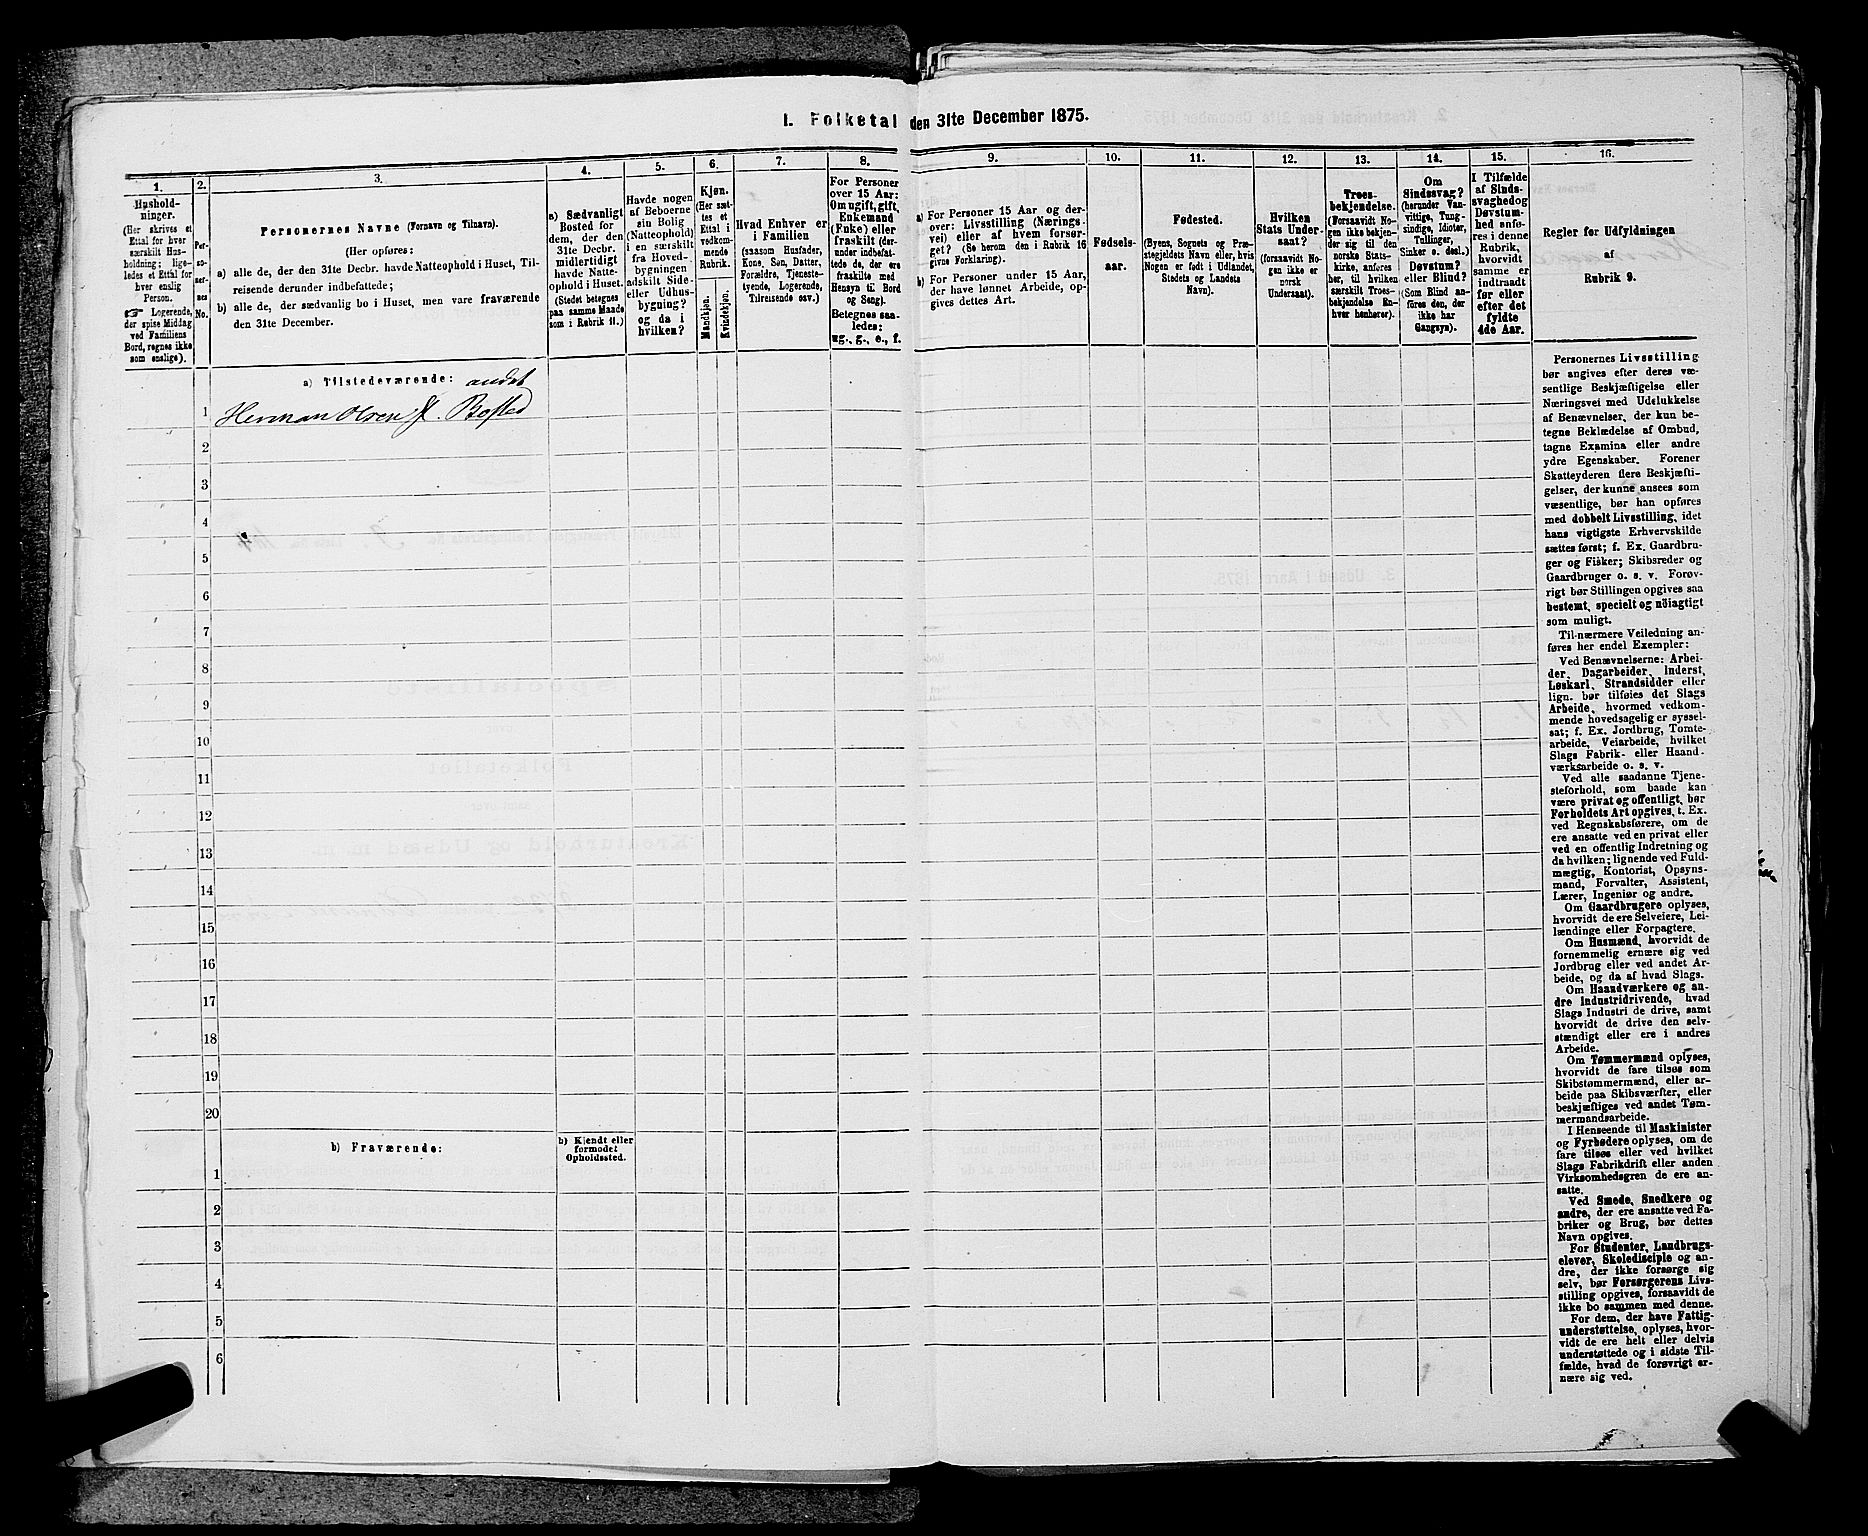 I. Folketal den 31te December 1875.
1.
2.
3.
4.
5.
6.
7.
8.
9.
10.
11.
12.
13.
14.
15.
16.
Hushold-
ninger.
(Her skrives et
Ettal for hver
særskilt Hus-
holdning; lige-
ledes et Ettal for
hver enslig
Person.
☞ Logerende,
der spise Middag
ved Familiens
Bord, regnes ikke
som enslige).
Per-
so-
ner-
nes
No.
Personernes Navne (Fornavn og Tilnavn).
(Her opføres:
a) alle de, der den 31te Decbr. havde Natteophold i Huset, Til-
reisende derunder indbefattede;
b) alle de, der sædvanlig bo i Huset, men vare fraværende
den 31te December.
a) Sædvanligt
Bosted for
dem, der den
31te Decbr.
midlertidigt
havde Natte-
ophold i Huset.
(Stedet betegnes
paa samme Maade
som i Rubrik 11.)
Havde nogen
af Beboerne
sin Bolig
(Natteophold)
i en særskilt
fra Hoved-
bygningen
adskilt Side-
eller Udhus-
bygning?
og da i
hvilken?
Kjøn.
(Her sæt-
tes et
Ettal i
vedkom-
mende
Rubrik.
Mandkjøn.
Kvindekjøn.
Hvad Enhver er
i Familien
(saasom Husfader,
Kone, Søn, Datter,
Forældre, Tjeneste-
tyende, Logerende,
Tilreisende osv.)
For Personer
over 15 Aar:
Om ugift, gift,
Enkemand
(Enke) eller
fraskilt (der-
under indbefat-
tede de, der ere
fraskilte med
Hensyn til Bord
og Seng).
Betegnes saa-
ledes:
ug., g., e., f.
a) For Personer 15 Aar og der-
over: Livsstilling (Nærings-
vei) eller af hvem forsør-
get? (Se herom den i Rubrik 16
givne Forklaring).
b) For Personer under 15 Aar,
der have lønnet Arbeide, op-
gives dettes Art.
Fødsels-
aar.
Fødested.
(Byens, Sognets og Præ-
stegjeldets Navn eller, hvis
Nogen er født i Udlandet,
Stedets og Landets
Navn).
Hvilken
Stats Under-
saat?
(forsaavidt No-
gen ikke er
norsk
Undersaat).
Troes-
bekjendelse.
(Forsaavidt No-
gen ikke bekjen-
der sig til den
norske Stats-
kirke, anføres
her, til hvilken
særskilt Troes-
bekjendelse En-
hver henhører).
Om
Sindssvag?
(herunder Van-
vittige, Tung-
sindige, Idioter,
Tullinger,
Sinker o. desl.)
Døvstum?
eller Blind?
(Som Blind an-
føres den, der
ikke har
Gangsyn).
I Tilfælde
af Sinds-
svaghed og
Døvstum-
hed anfø-
res i denne
Rubrik,
hvorvidt
samme er
indtraadt
før eller
efter det
fyldte
4de Aar.
Regler for Udfyldningen
af
Rubrik 9.
a) Tilstedeværende: andet
1 Herman Olsen St. Bosted
2
3
4
5
6
7
8
9
10
11
12
13
14
15
16
17
18
19
20
b) Fraværende:
b) Kjendt eller
formodet
Opholdssted.
1
2
3
4
5
6
Personernes Livsstilling
bør angives efter deres væ-
sentlige Beskjæftigelse eller
Næringsvei med Udelukkelse
af Benævnelser, der kun be-
tegne Beklædelse af Ombud,
tagne Examina eller andre
ydre Egenskaber. Forener
Skatteyderen flere Beskjæfti-
gelser, der kunne ansees som
væsentlige, bør han opføres
med dobbelt Livsstilling, idet
hans vigtigste Erhvervskilde
sættes først; f. Ex. Gaardbru-
ger og Fisker; Skibsreder og
Gaardbruger o. s. v. Forøv-
rigt bør Stillingen opgives saa
bestemt, specielt og nöiagtigt
som muligt.
Til nærmere Veiledning an-
føres her endel Exempler:
Ved Benævnelserne: Arbei-
der, Dagarbeider, Inderst,
Løskarl, Strandsidder eller
lign. bør tilføies det Slags
Arbeide, hvormed vedkom-
mende hovedsagelig er syssel-
sat; f. Ex. Jordbrug, Tomte-
arbeide, Veiarbeide, hvilket
Slags Fabrik- eller Haand-
værksarbeide o. s. v.
Ved alle saadanne Tjene-
steforhold, som baade kan
være privat og offentligt, bør
Forholdets Art opgives, t. Ex.
ved Regnskabsførere, om de
ere ansatte ved en privat eller
ved en offentlig Indretning og
da hvilken; lignende ved Fuld-
mægtig, Kontorist, Opsyns-
mand, Forvalter, Assistent,
Lærer, Ingeniør og andre.
Om Gaardbrugere oplyses,
hvorvidt de ere Selveiere, Lei-
lændinge eller Forpagtere.
Om Husmænd, hvorvidt de
fornemmelig ernære sig ved
Jordbrug eller ved andet Ar-
beide, og da af hvad Slags.
Om Haandværkere og an-
dre Industridrivende, hvad
Slags Industri de drive, samt
hvorvidt de drive den selv-
stændigt eller ere i andres
Arbeide.
Om Tømmermænd oplyses,
hvorvidt de fare tilsøs som
Skibstømmermænd, eller ar-
beide paa Skibsværfter, eller
beskjæftiges ved andet Tøm-
mermandsarbeide.
I Henseende til Maskinister
og Fyrbødere oplyses, om de
fare tilsøs eller ved hvilket
Slags Fabrikdrift eller anden
Virksomhedsgren de ere an-
satte.
Ved Smede, Snedkere og
andre, der ere ansatte ved Fa-
briker og Brug, bør dettes
Navn opgives.
For Studenter, Landbrugs-
elever, Skoledisciple og an-
dre, der ikke forsørge sig
selv, bør Forsørgerens Livs-
stilling opgives, forsaavidt de
ikke bo sammen med denne.
For dem, der have Fattig-
understøttelse, oplyses, hvor-
vidt de ere helt eller delvis
understøttede og i sidste Til-
fælde, hvad de forøvrigt er-
nære sig ved.